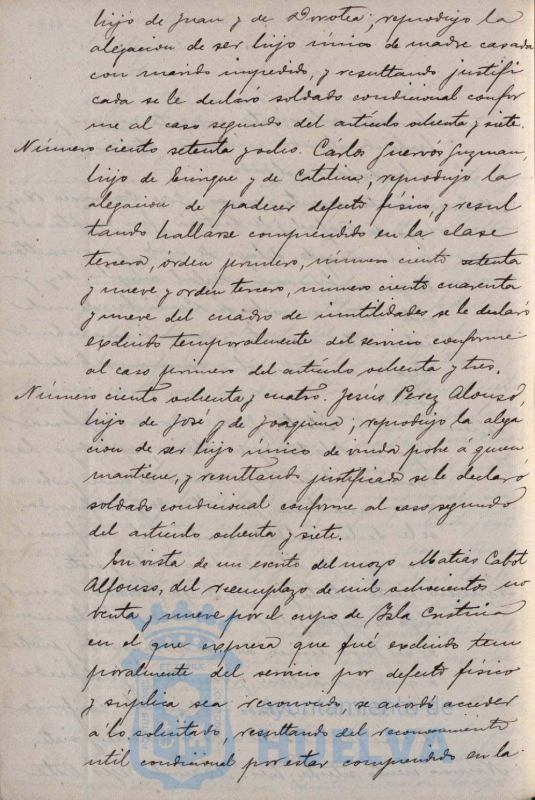 hijo de Juan y de Dorotea, reprodujo la
alegacion de ser hijo único de madre casada
con marido impedido, y resultando justifi
cada se le declaró soldado condicional confor
me al caso segundo del artículo ochenta y siete.
Número ciento setenta y ocho. Cárlos Guervós Guzman,
hijo de Enrique y de Catalina, reprodujo la
alegacion de padecer defecto físico, y resul
tando hallarse comprendido en la clase
tercera, orden primero, número ciento setenta
y nueve y orden tercero, número ciento cuarenta
y nueve del cuadro de inutilidades se le declaró
excluido temporalmente del servicio conforme
al caso primero del artículo ochenta y tres.
Número ciento ochenta y cuatro. Jesús Perez Alonso,
hijo de José y de Joaquina, reprodujo la alega
cion de ser hijo único de viuda pobre á quien
mantiene, y resultando justificada se le declaró
soldado condicional conforme al caso segundo
del artículo ochenta y siete.
En vista de un escrito del mozo Matias Cabot
Alfonso, del reemplazo de mil ochocientos no
venta y nueve por el cupo de Isla Cristina
en el que expresa que fué excluido tem
poralmente del servicio por defecto físico
y súplica sea reconocido, se acordó acceder
á lo solicitado, resultando del reconocimiento
util condicional por estar comprendido en la
Ayuntamiento de
HUELVA